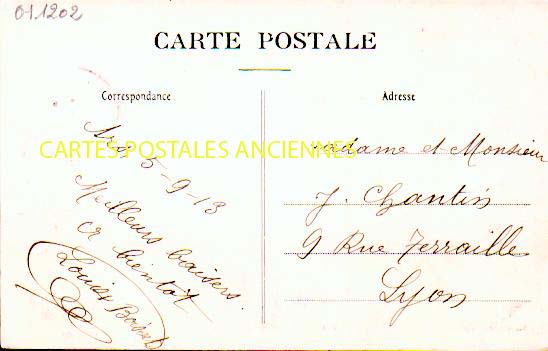 011202
CARTE POSTALE
Correspondance
Adresse
CARTES POSTALES ANCIENNES
Ars, 5-9-13
Meilleurs baisers
et bientôt
Louise
Madame et Monsieur
J. Chantin
9 Rue Ferraille
Lyon